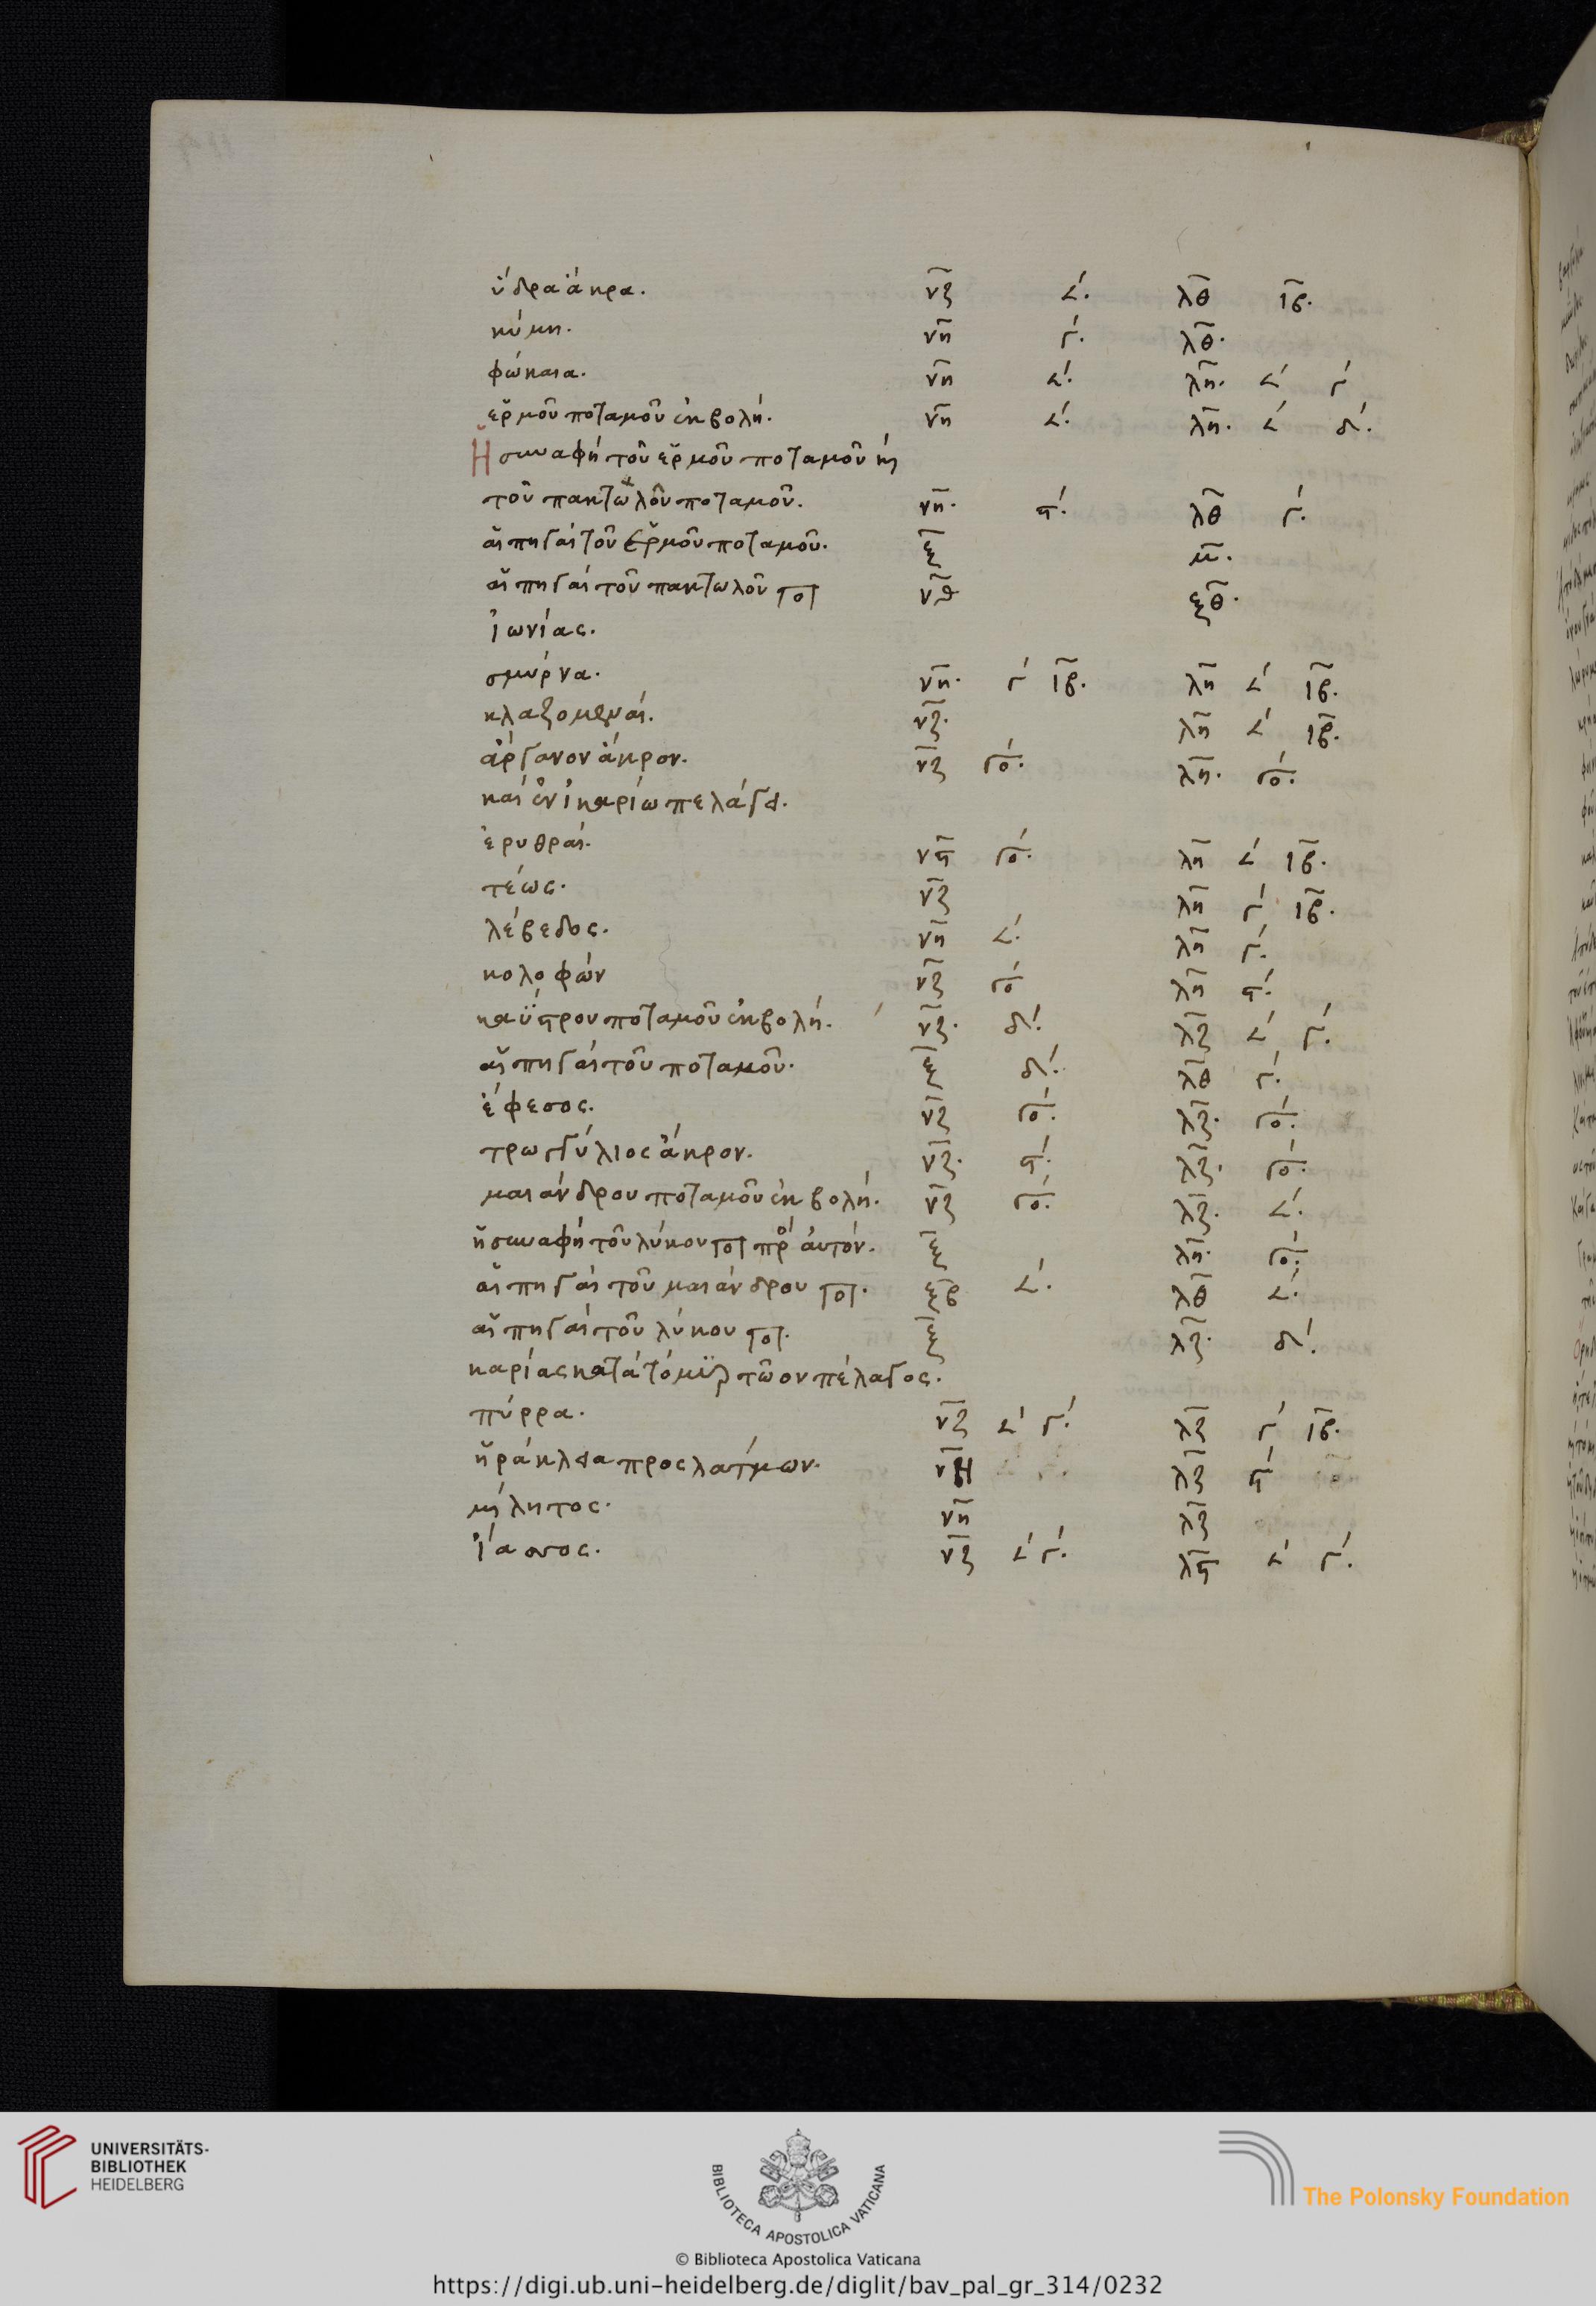 ὕδρα ἄκρα. νζ ∠΄. λθ ιβ.
κύμη. νη γ΄. λθ.
φώκαια. νη ∠΄. λη. ∠΄ γ΄
ἕρμου ποταμοῦ ἐκβολή. νη ∠΄. λη. ∠΄ δ΄.
Ἡ συναφὴ τοῦ ἕρμου ποταμοῦ κ(αὶ)
τοῦ πακτωλοῦ ποταμοῦ. νη. ϛ΄. λθ γ΄.
αἱ πηγαὶ τοῦ ἕρμου ποταμοῦ. ξ μ.
αἱ πηγαὶ τοῦ πακτωλοῦ ποτ νθ ξθ.
ἰωνίας.
σμύρνα. νη. γ΄ ιβ. λη ∠΄ ιβ.
κλαζομεναί. νζ. λη ∠΄ ιβ.
ἄργανον ἄκρον. νζ γο΄. λη. γο΄.
καὶ ἐν ἰκαρίω πελάγει.
ἐρυθραί. νϛ γο΄. λη ∠΄ ιβ.
τέως. νζ λη γ΄ ιβ.
λέβεδος. νη ∠΄. λη γ΄.
κολοφών νζ γο΄ λη ϛ΄.
καΰστρου ποταμοῦ ἐκβολή. νζ. δ΄. λζ ∠΄ γ΄.
αἱ πηγαὶ τοῦ ποταμοῦ. ξ δ΄. λθ γ΄.
ἔφεσος. νζ γο΄. λζ. γο΄.
τρωγγύλιος ἄκρον. νζ. ϛ΄. λζ. γο΄.
μαιάνδρου ποταμοῦ ἐκβολή. νζ γο΄. λζ. ∠΄.
ἡ συναφὴ τοῦ λύκου ποτ πρὸ αὐτόν. ξ λη. γο΄.
αἱ πηγαὶ τοῦ μαιάνδρου ποτ. ξβ ∠΄. λθ ∠΄.
αἱ πηγαὶ τοῦ λύκου ποτ. ξ λζ. δ΄.
καρίας κατὰ τὸ μυρτῶον πέλαγος.
πύρρα. νζ ∠΄ γ΄. λζ γ΄ ιβ.
ἡράκλεια προς λάτμων. νΗ λζ ϛ΄
μίλητος. νη λζ
ἴασσος. νζ ∠΄ γ΄. λϛ ∠΄ γ΄.
UNIVERSITÄTS-
BIBLIOTHEK
HEIDELBERG
BIBLIOTECA APOSTOLICA VATICANA
The Polonsky Foundation
© Biblioteca Apostolica Vaticana
https://digi.ub.uni-heidelberg.de/diglit/bav_pal_gr_314/0232